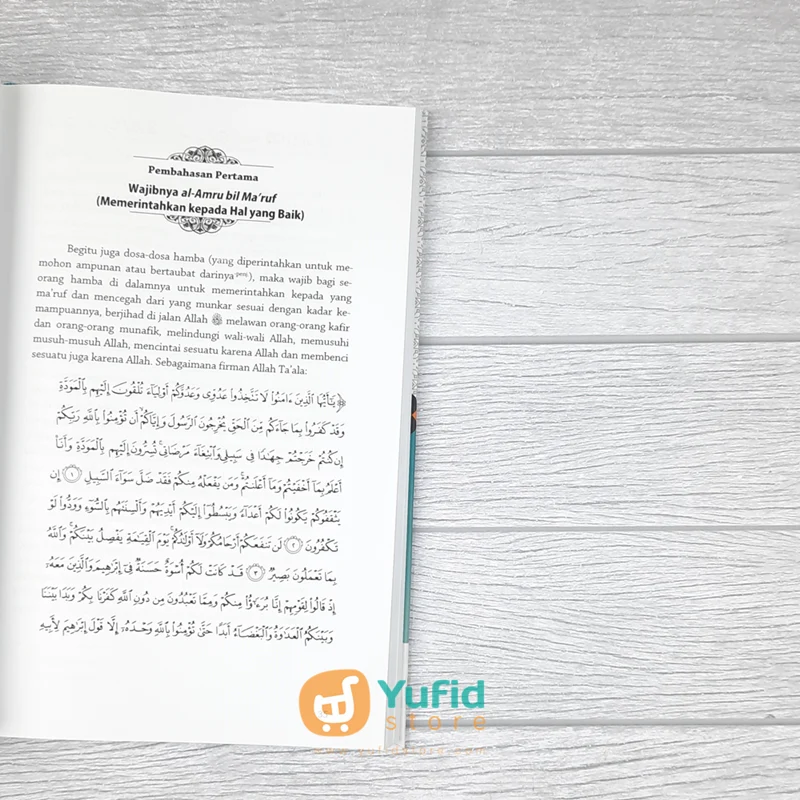 Pembahasan Pertama
Wajibnya al-Amru bil Ma'ruf
(Memerintahkan kepada Hal yang Baik)
Begitu juga dosa-dosa hamba (yang diperintahkan untuk me-
mohon ampunan atau bertaubat darinya penj), maka wajib bagi se-
orang hamba di dalamnya untuk memerintahkan kepada yang
ma'ruf dan mencegah dari yang munkar sesuai dengan kadar ke-
mampuannya, berjihad di jalan Allah ﷻ melawan orang-orang kafir
dan orang-orang munafik, melindungi wali-wali Allah, memusuhi
musuh-musuh Allah, mencintai sesuatu karena Allah dan membenci
sesuatu juga karena Allah. Sebagaimana firman Allah Ta'ala:
﴿ يَٰٓأَيُّهَا ٱلَّذِينَ ءَامَنُوا۟ لَا تَتَّخِذُوا۟ عَدُوِّى وَعَدُوَّكُمْ أَوْلِيَآءَ تُلْقُونَ إِلَيْهِم بِٱلْمَوَدَّةِ
وَقَدْ كَفَرُوا۟ بِمَا جَآءَكُم مِّنَ ٱلْحَقِّ يُخْرِجُونَ ٱلرَّسُولَ وَإِيَّاكُمْ أَن تُؤْمِنُوا۟ بِٱللَّهِ رَبِّكُمْ
إِن كُنتُمْ خَرَجْتُمْ جِهَٰدًا فِى سَبِيلِى وَٱبْتِغَآءَ مَرْضَاتِى تُسِرُّونَ إِلَيْهِم بِٱلْمَوَدَّةِ وَأَنَا۠
أَعْلَمُ بِمَآ أَخْفَيْتُمْ وَمَآ أَعْلَنتُمْ وَمَن يَفْعَلْهُ مِنكُمْ فَقَدْ ضَلَّ سَوَآءَ ٱلسَّبِيلِ ١ إِن
يَثْقَفُوكُمْ يَكُونُوا۟ لَكُمْ أَعْدَآءً وَيَبْسُطُوٓا۟ إِلَيْكُمْ أَيْدِيَهُمْ وَأَلْسِنَتَهُم بِٱلسُّوٓءِ وَوَدُّوا۟ لَوْ
تَكْفُرُونَ ٢ لَن تَنفَعَكُمْ أَرْحَامُكُمْ وَلَآ أَوْلَٰدُكُمْ يَوْمَ ٱلْقِيَٰمَةِ يَفْصِلُ بَيْنَكُمْ وَٱللَّهُ
بِمَا تَعْمَلُونَ بَصِيرٌ ٣ قَدْ كَانَتْ لَكُمْ أُسْوَةٌ حَسَنَةٌ فِىٓ إِبْرَٰهِيمَ وَٱلَّذِينَ مَعَهُۥٓ
إِذْ قَالُوا۟ لِقَوْمِهِمْ إِنَّا بُرَءَٰٓؤُا۟ مِنكُمْ وَمِمَّا تَعْبُدُونَ مِن دُونِ ٱللَّهِ كَفَرْنَا بِكُمْ وَبَدَا بَيْنَنَا
وَبَيْنَكُمُ ٱلْعَدَٰوَةُ وَٱلْبَغْضَآءُ أَبَدًا حَتَّىٰ تُؤْمِنُوا۟ بِٱللَّهِ وَحْدَهُۥٓ إِلَّا قَوْلَ إِبْرَٰهِيمَ لِأَبِيهِ
Yufid
store